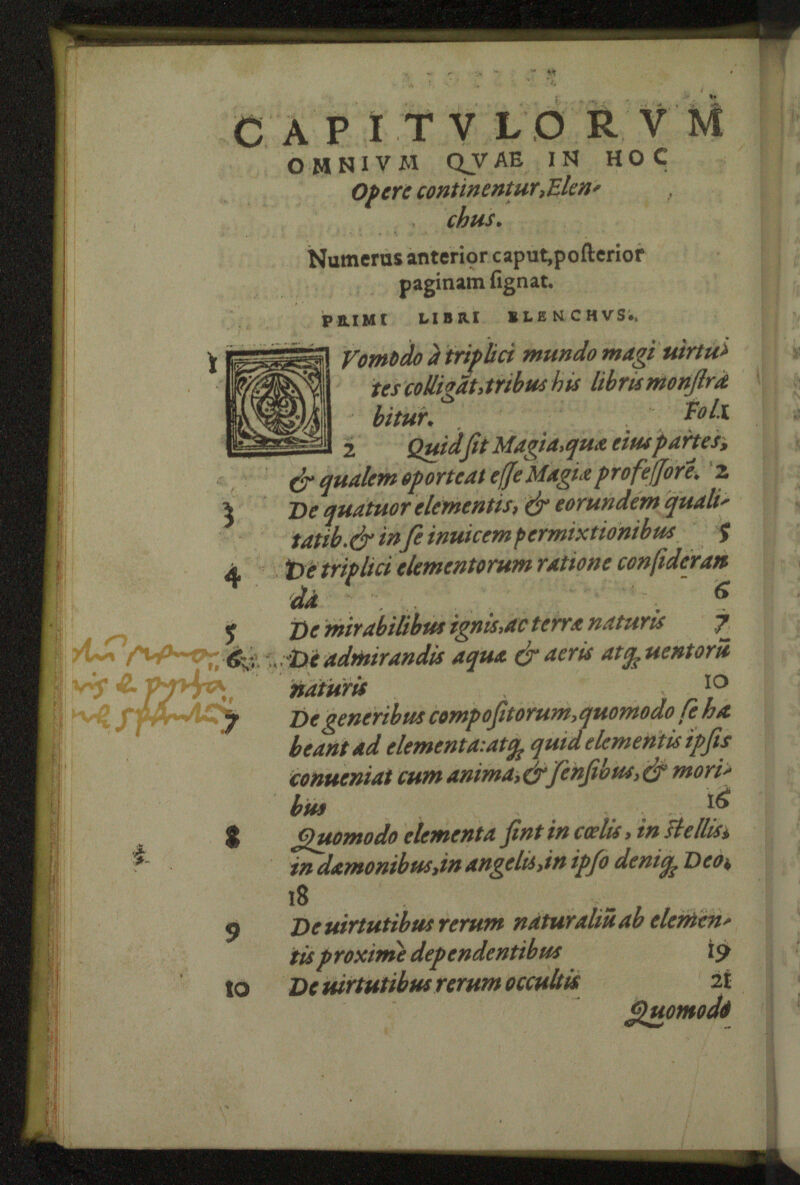 CAPITVLORVM
OMNIVM QVAE IN HOC
Opere continentur, Elen-
chus.
Numerus anterior caput, poſterior
paginam ſignat.
PRIMI LIBRI ELENCHVS.
1 QVomodo à triplici mundo magi uirtu-
tes colligāt, tribus his libris monſtrā
bitur. Fol. 1
2 Quid ſit Magia, quæ eius partes,
& qualem oporteat eſſe Magiæ profeſſorē. 2
3 De quatuor elementis, & eorundem quali-
tatib. & in ſe inuicem permixtionibus 5
4 De triplici elementorum ratione conſideran
da 6
5 De mirabilibus ignis, ac terræ naturis 7
6 De admirandis aquæ & aeris atq; uentorū
naturis 10
7 De generibus compoſitorum, quomodo ſe ha
beant ad elementa: atq; quid elementis ipſis
conueniat cum anima, & ſenſibus, & mori-
bus 16
8 Quomodo elementa ſint in cœlis, in ſtellis,
in dæmonibus, in angelis, in ipſo deniq; Deo,
18
9 De uirtutibus rerum naturaliū ab elemen-
tis proximè dependentibus 19
10 De uirtutibus rerum occultis 21
Quomodo